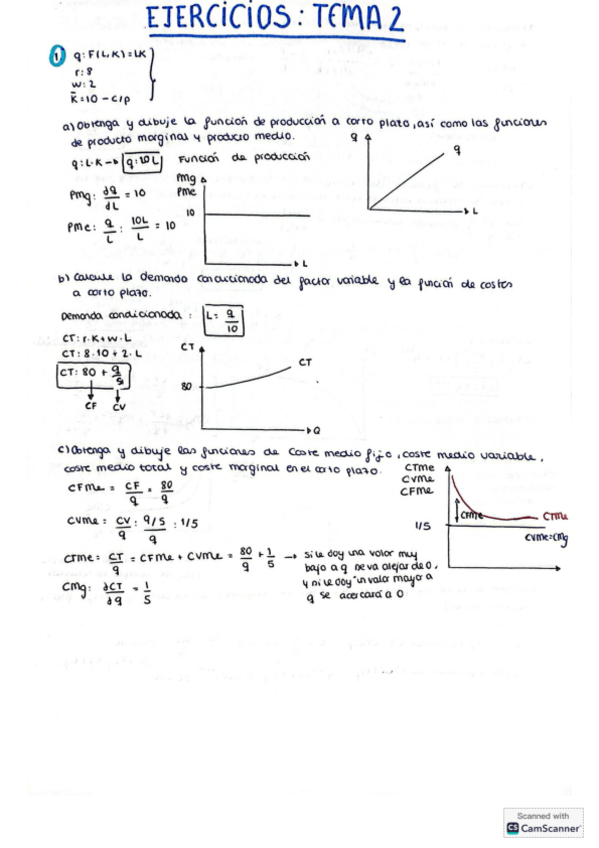 EJERCICIOS: TEMA 2
1 q: F(L,K)=LK
r: 8
w: 2
K̄=10 - c/p
a) Obtenga y dibuje la función de producción a corto plazo, así como las funciones
de producto marginal y producto medio.
q: L·K → q: 10L Función de producción
q
q
L
Pmg: dq/dL = 10
Pme: q/L : 10L/L = 10
Pmg
Pme
10
L
b) Calcule la demanda condicionada del factor variable y la función de costes
a corto plazo.
Demanda condicionada : L= q/10
CT: r·K+w·L
CT: 8·10 + 2·L
CT: 80 + q/5
CF CV
CT
80
CT
Q
c) Obtenga y dibuje las funciones de Coste medio fijo, coste medio variable,
coste medio total y coste marginal en el corto plazo.
CFMe = CF/q = 80/q
CVMe = CV/q : q/5/q : 1/5
CTMe = CT/q = CFMe + CVMe = 80/q + 1/5 → si le doy una valor muy
bajo a q se va alejar de 0,
y si le doy un valor mayor a
q se acercará a 0
CMg: dCT/dq = 1/5
CTMe
CVMe
CFMe
1/5
CFMe
CTMe
CVMe=CMg
Scanned with
CS CamScanner